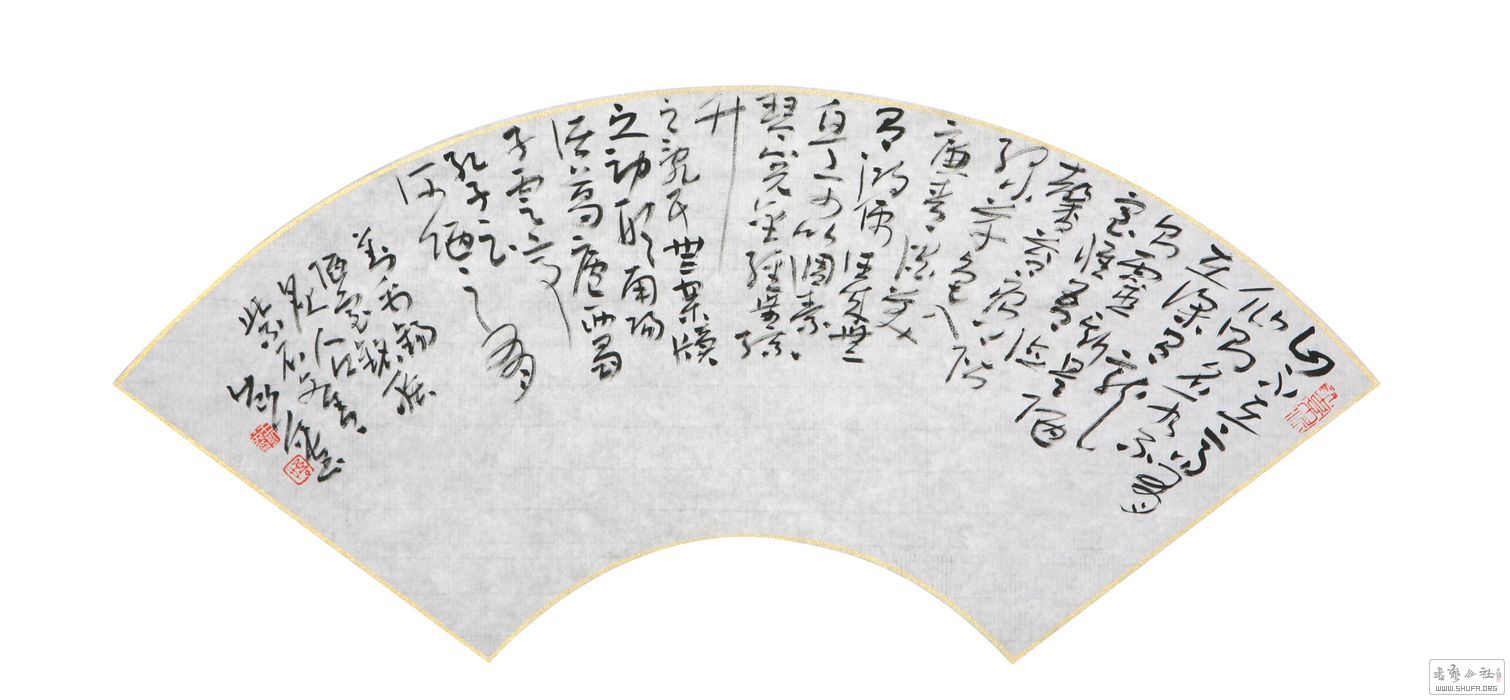 山不在高有
仙则名水不
在深有龙
则灵斯是陋
室惟吾德
馨苔痕上阶
绿草色入
帘青谈笑
有鸿儒往来无
白丁可以调素
琴阅金经无丝
竹
之乱耳无案牍
之劳形南阳
诸葛庐西蜀
子云亭
孔子云
何陋之有
刘禹锡
陋室铭
紫石
书艺公社
WWW.SHUFA.ORG